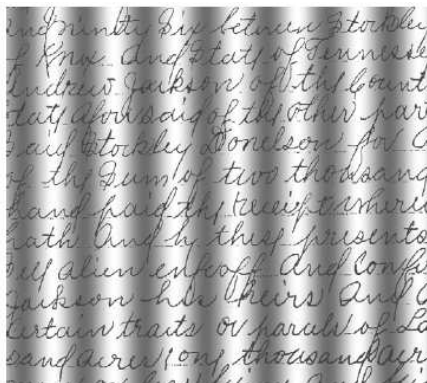 and ninety Six between Stockley
of Knox And State of Tennesse
Andrew Jackson of the Count
State aforesaid of the other par
Said Stockley Donelson for
of the Sum of two thousand
hand paid the receipt
hath And by these presents
Sell alien enfeoff And Confi
Jackson his heirs And
Certain traits or parcels of La
sand acres one thousand acr